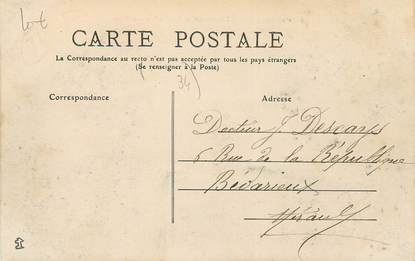 CARTE POSTALE
La Correspondance au recto n'est pas acceptée par tous les pays étrangers
(Se renseigner à la Poste)
34
Correspondance
Adresse
Docteur J Descays
6 Rue de la République
Bédarieux
Hérault